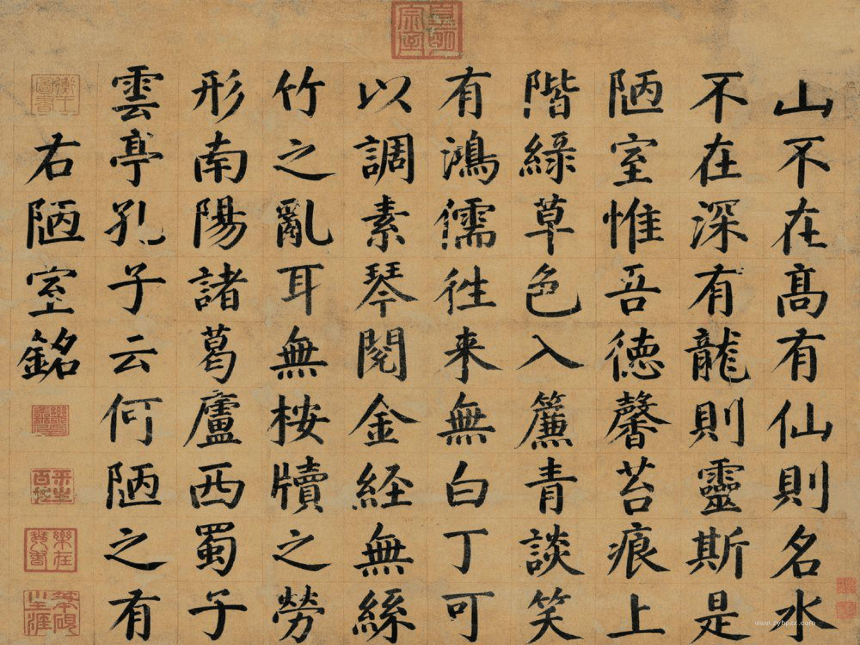 山不在髙有仙則名水
不在深有龍則靈斯是
陋室惟吾德馨苔痕上
階綠草色入簾青談笑
有鴻儒往来無白丁可
以調素琴閱金経無絲
竹之亂耳無桉牘之勞
形南陽諸葛廬西蜀子
雲亭孔子云何陋之有
右陋室銘